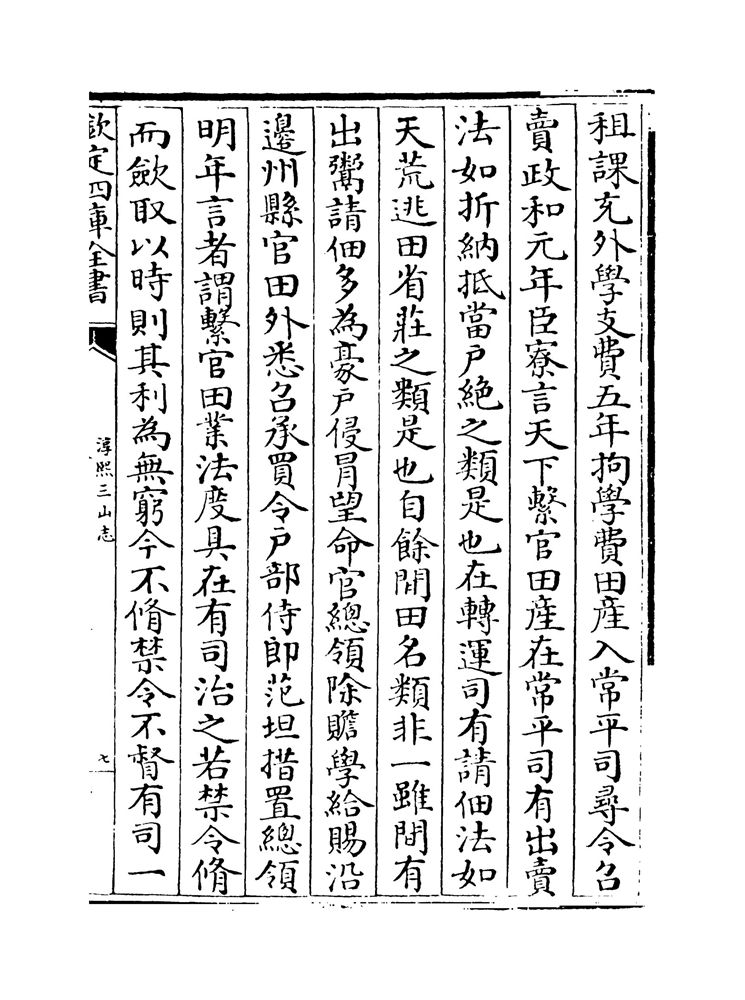 租課充外學支費五年拘學費田産入常平司尋令召
賣政和元年臣寮言天下繫官田産在常平司有出賣
法如折納抵當戸絶之類是也在轉運司有請佃法如
天荒逃田省莊之類是也自餘閒田名類非一雖間有
出鬻請佃多為豪戸侵冐望命官總領除贍學給賜沿
邉州縣官田外悉召承買令戸部侍郎范坦措置總領
明年言者謂繫官田業法度具在有司治之若禁令脩
而歛取以時則其利為無窮今不脩禁令不督有司一
欽定四庫全書
淳熙三山志
七